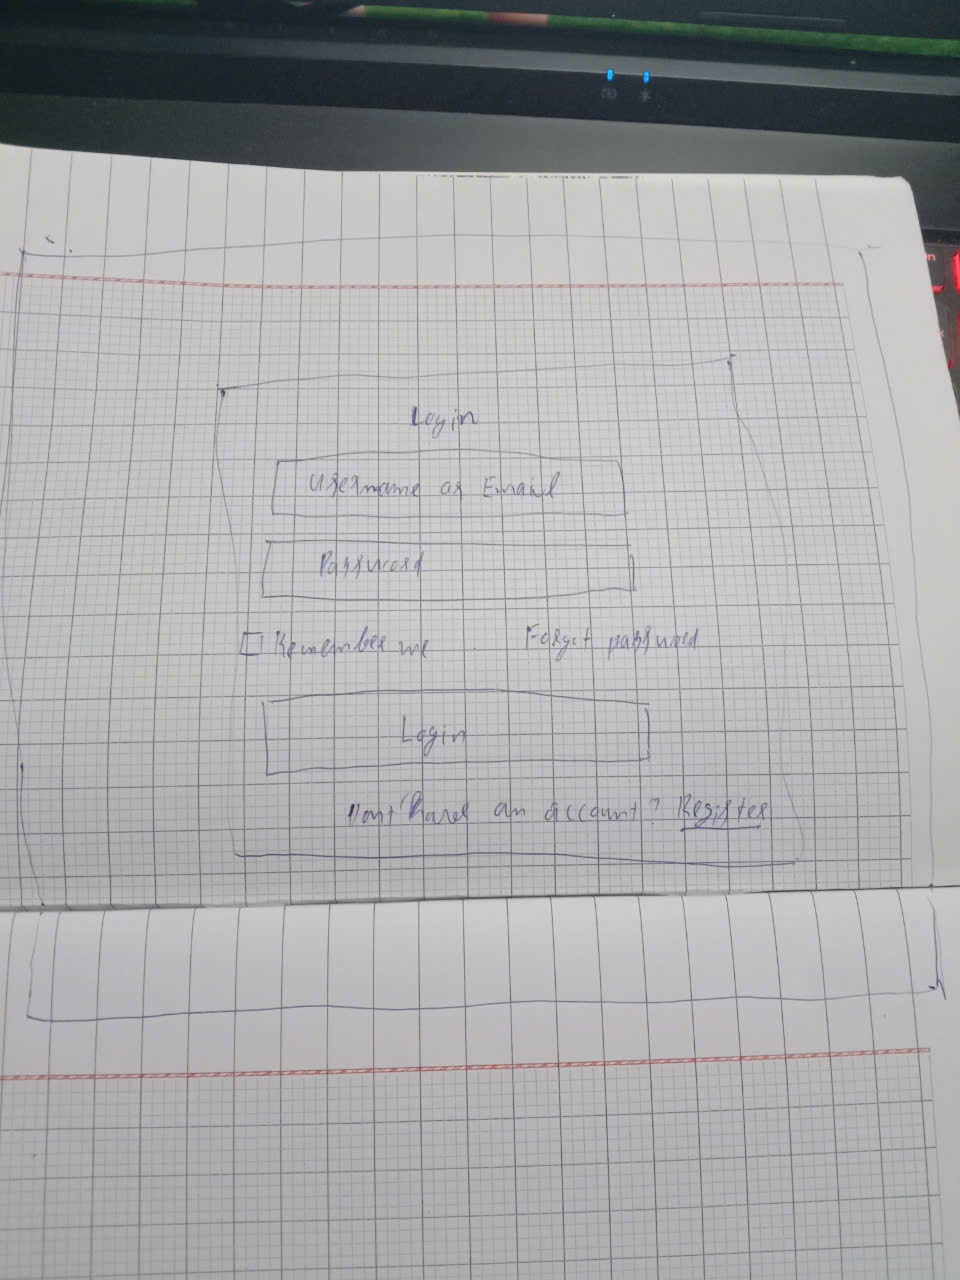 Login
Username or Email
Password
Remember me Forgot password
Login
Dont have an account? Register